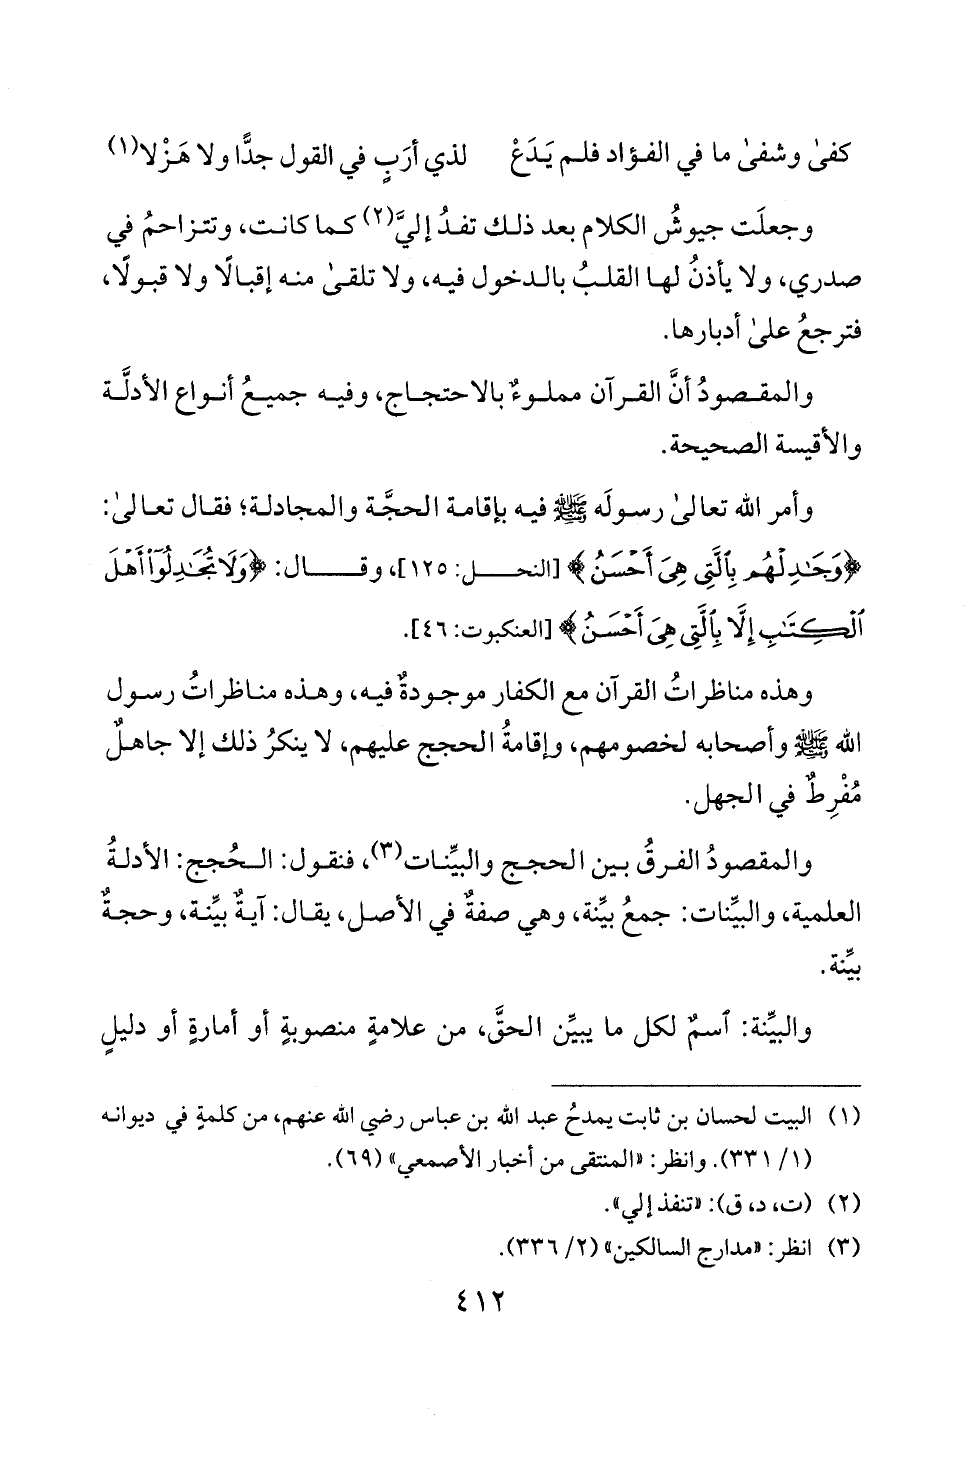 كفىٰ وشفىٰ ما في الفؤاد فلم يَدَعْ لذي أرَبٍ في القول جدًّا ولا هَزْلا(١)
وجعلَت جيوشُ الكلام بعد ذلك تفدُ إليَّ(٢) كما كانت، وتتزاحمُ في
صدري، ولا يأذنُ لها القلبُ بالدخول فيه، ولا تلقىٰ منه إقبالًا ولا قبولًا،
فترجعُ علىٰ أدبارها.
والمقصودُ أنَّ القرآن مملوءٌ بالاحتجاج، وفيه جميعُ أنواع الأدلَّة
والأقيسة الصحيحة.
وأمر الله تعالىٰ رسولَه ﷺ فيه بإقامة الحجَّة والمجادلة؛ فقال تعالىٰ:
﴿وَجَٰدِلْهُم بِٱلَّتِى هِىَ أَحْسَنُ﴾ [النحل: ١٢٥]، وقال: ﴿وَلَا تُجَٰدِلُوٓا۟ أَهْلَ
ٱلْكِتَٰبِ إِلَّا بِٱلَّتِى هِىَ أَحْسَنُ﴾ [العنكبوت: ٤٦].
وهذه مناظراتُ القرآن مع الكفار موجودةٌ فيه، وهذه مناظراتُ رسول
الله ﷺ وأصحابه لخصومهم، وإقامةُ الحجج عليهم، لا ينكرُ ذلك إلا جاهلٌ
مُفْرِطٌ في الجهل.
والمقصودُ الفرقُ بين الحجج والبيِّنات(٣)، فنقول: الحُجج: الأدلةُ
العلمية، والبيِّنات: جمعُ بيِّنة، وهي صفةٌ في الأصل، يقال: آيةٌ بيِّنة، وحجةٌ
بيِّنة.
والبيِّنة: ٱسمٌ لكل ما يبيِّن الحقَّ، من علامةٍ منصوبةٍ أو أمارةٍ أو دليلٍ
(١) البيت لحسان بن ثابت يمدحُ عبد الله بن عباس رضي الله عنهم، من كلمةٍ في ديوانه
(١/ ٣٣١). وانظر: «المنتقى من أخبار الأصمعي» (٦٩).
(٢) (ت، د، ق): «تنفذ إلي».
(٣) انظر: «مدارج السالكين» (٢/ ٣٣٦).
٤١٢